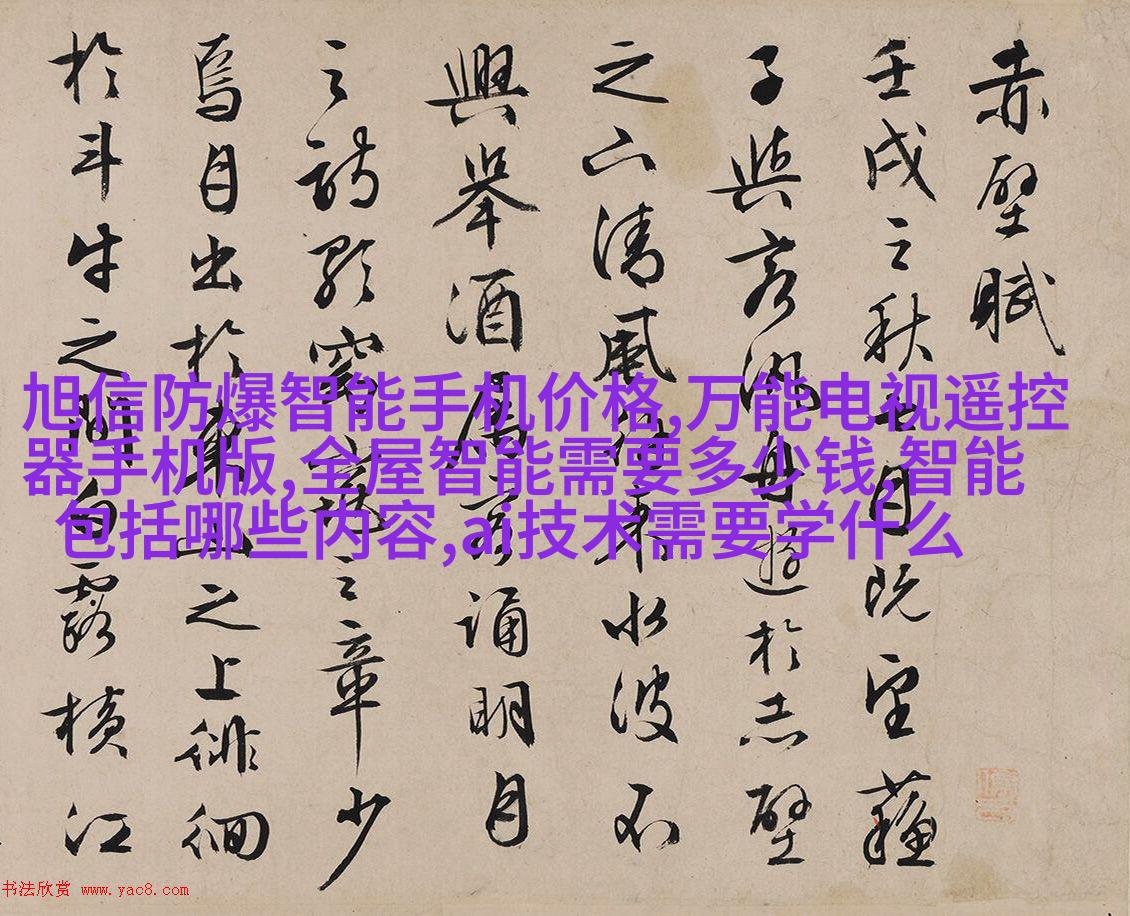 赤壁賦
壬戌之秋七月既望蘇
子與客泛舟遊於赤壁
之下清風徐來水波不
興舉酒屬客誦明月
之詩歌窈窕之章少
焉月出於東山之上徘徊
於斗牛之間白露橫江
旭信防爆智能手机价格,万能电视遥控
器手机版,全屋智能需要多少钱,智能
包括哪些内容,ai技术需要学什么
书法欣赏 www.yac8.com